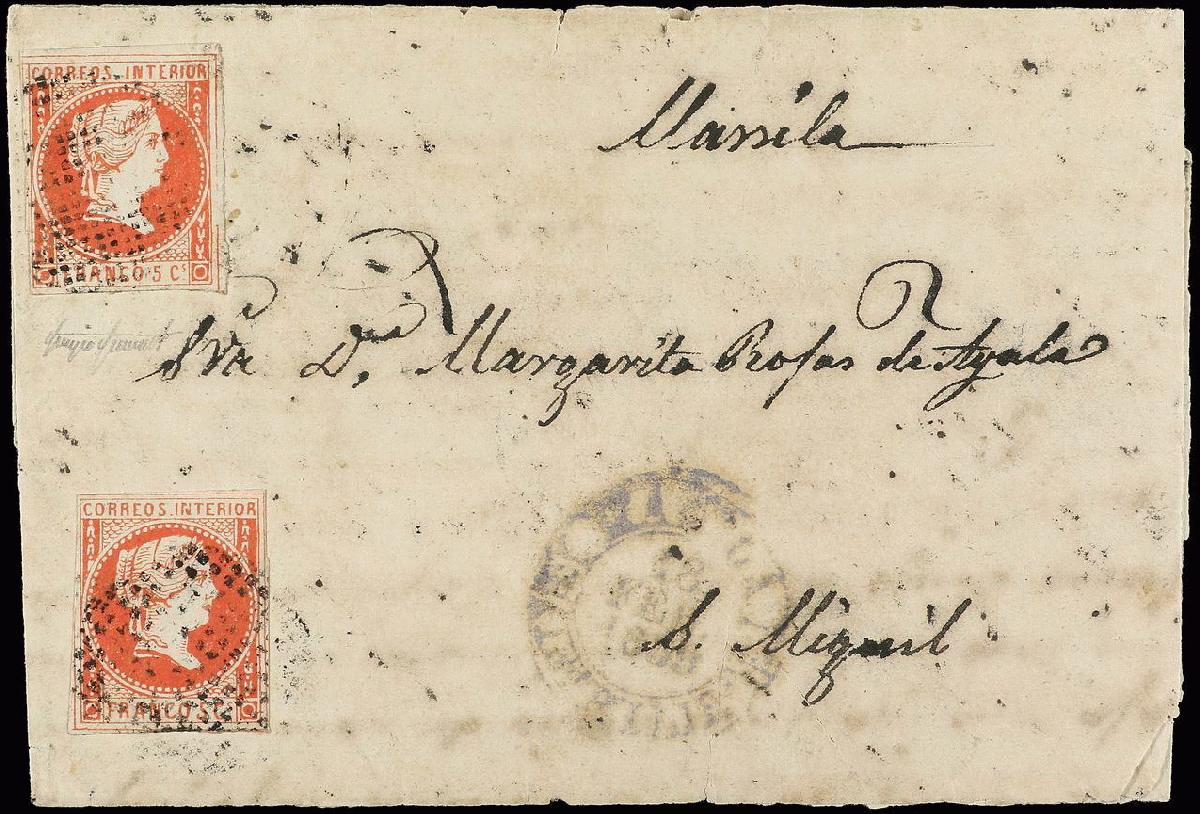 CORREOS. INTERIOR
FRANCO 5 Cs
Manila
Sra Dña Margarita Rosas de Ayala
CORREOS. INTERIOR
FRANCO 5 Cs
S. Miguel